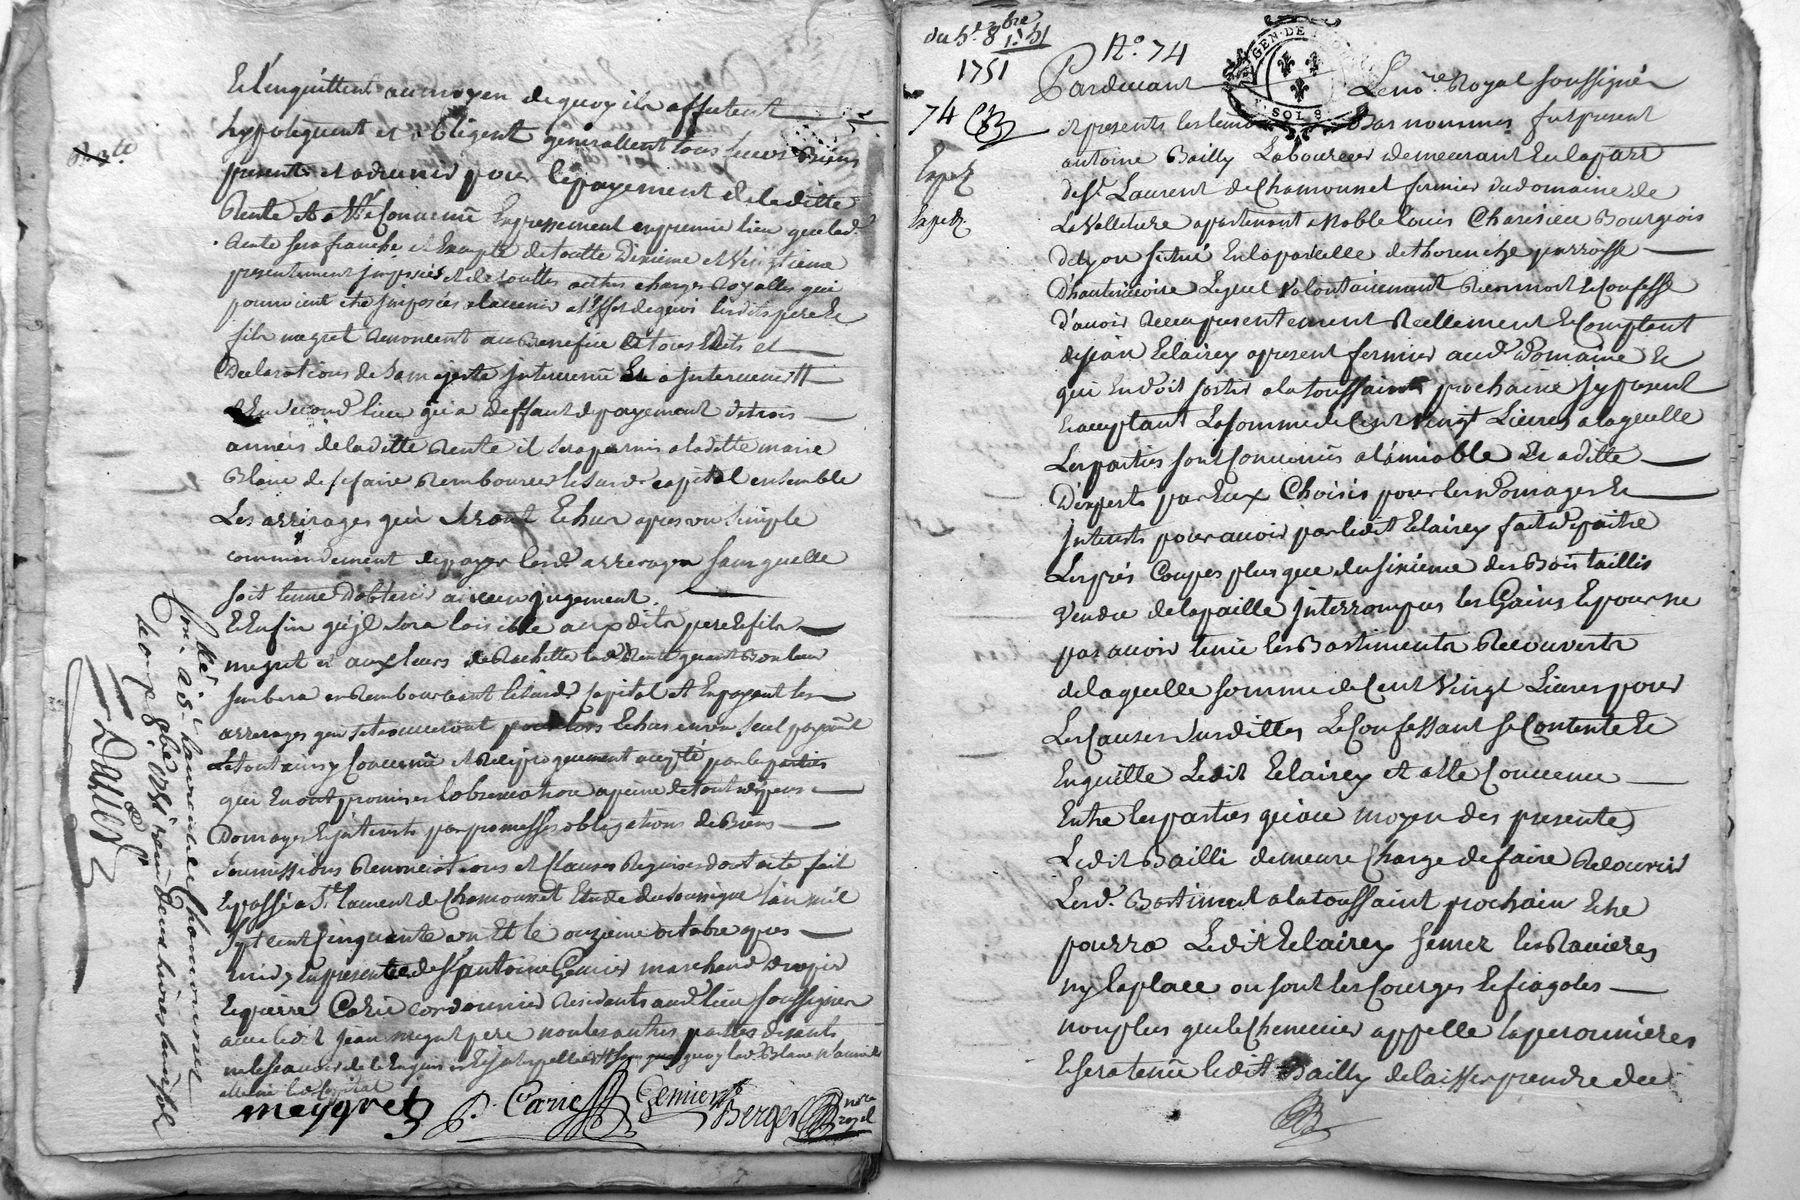 Et l'inquittent au moyen de quoy ils affectent
hypotequent et obligent generallent tous leurs Biens
presents et advenir pour le payement de laditte
Rente et a été Convenu Expressement en premier lieu que lad.
Rente sera franche et Exempte de toutte Dixieme et Vingtieme
presentement imposés et de touttes autres charges Royalles qui
pourroient etre imposées a l'avenir et Effet de quoi lesdits pere et
fils megret Renoncent au Benefice de tous Edits et
Declarations de Sa majesté intervenu Et a intervenir
Et En second lieu qu'a deffaut de payement de trois
années de laditte Rente il sera permis a laditte marie
Blanc de se faire Rembourser lesusd. capital ensemble
Les arrirages qui seront Echus apres un simple
commendement de payer lesd. arrerages sans quelle
soit tenue d'obtenir aucun jugement
Et Enfin qu'il sera loisible auxdits pere et fils
megret et aux leurs de Rachetter lad. Rente quand Bon leur
semblera en Remboursant lesusd. Capital et En payant les
arrerages qui se trouveront pour lors Echus en un seul payemt
Le tout ainsy Convenu et Reciproquement accepté par les parties
qui En ont promis l'observation a peine de tout depens
Domages Et interets par promesses obligations de Biens
soumissions Renonciations et Clauses Requises dont acte fait
Et passé a St. Laurent de Chamousset Etude du soussigné l'an mil
sept cent Cinquante un Et le onzieme octobre apres
midy En presence de Sr. antoine Gemier marchand drapier
Et pierre Carie cordonnier Residents aud. lieu soussignés
avec ledit jean megret pere non les autres parties disants
ne le scavoir de ce Enquis
meygret P. Carie Gemier Berger nore royal
Conlé. à St. Laurent de Chamousset
le onze 8bre 1751 Reçu deux livres huit sols
Dauier
du 5e. 8bre 1751
1751
N.º 74
74
Exped.
Exped.
GEN. DE LYON
SOLS
Pardevant Le nore. Royal soussigné
Et presents les temoins Bas nommés fut present
antoine Bailly Laboureur demeurant En la part
de St. Laurent de Chamousset fermier du domaine de
La Valleture apartenant a Noble Louis Charesieu Bourgeois
de Lyon situé En la parcelle de thorenche parroisse
D'hauterivoire Lequel Volontairement Reconnoit Et Confesse
d'avoir Receu presentement Reellement Et Comptant
de jean Eclairey a present fermier aud. Domaine Et
qui En doit sortir a la toussaint prochaine jcy present
Et acceptant La somme de Cent Vingt Livres a laquelle
Les parties sont Convenus a l'amiable Et a ditte
D'experts par Eux Choisis pour les Domages Et
Interets pour avoir par ledit Eclairey fait de paitre
Les prés Coupes plus que du sixième des Bois taillis
Vendu de la paille Interrompus les Gains Et pour ne
pas avoir tenu les Bastiments Recouverts
de laquelle somme de Cent Vingt Livres pour
Les Causes Susdittes Le Confessant se Contente Et
En quitte Ledit Eclairey Et a été Convenu
Entre les parties qu'au moyen des presentes
Ledit Bailli demeure Charge de faire Recouvrir
Lesd. Bastiment a la toussaint prochain Et ne
pourra Ledit Eclairey semer les Ravieres
ny la place ou sont les Courges Et fiageoles
non plus que le Chenevier appelle la peronnieres
Et sera tenu ledit Bailly de laisser prendre de